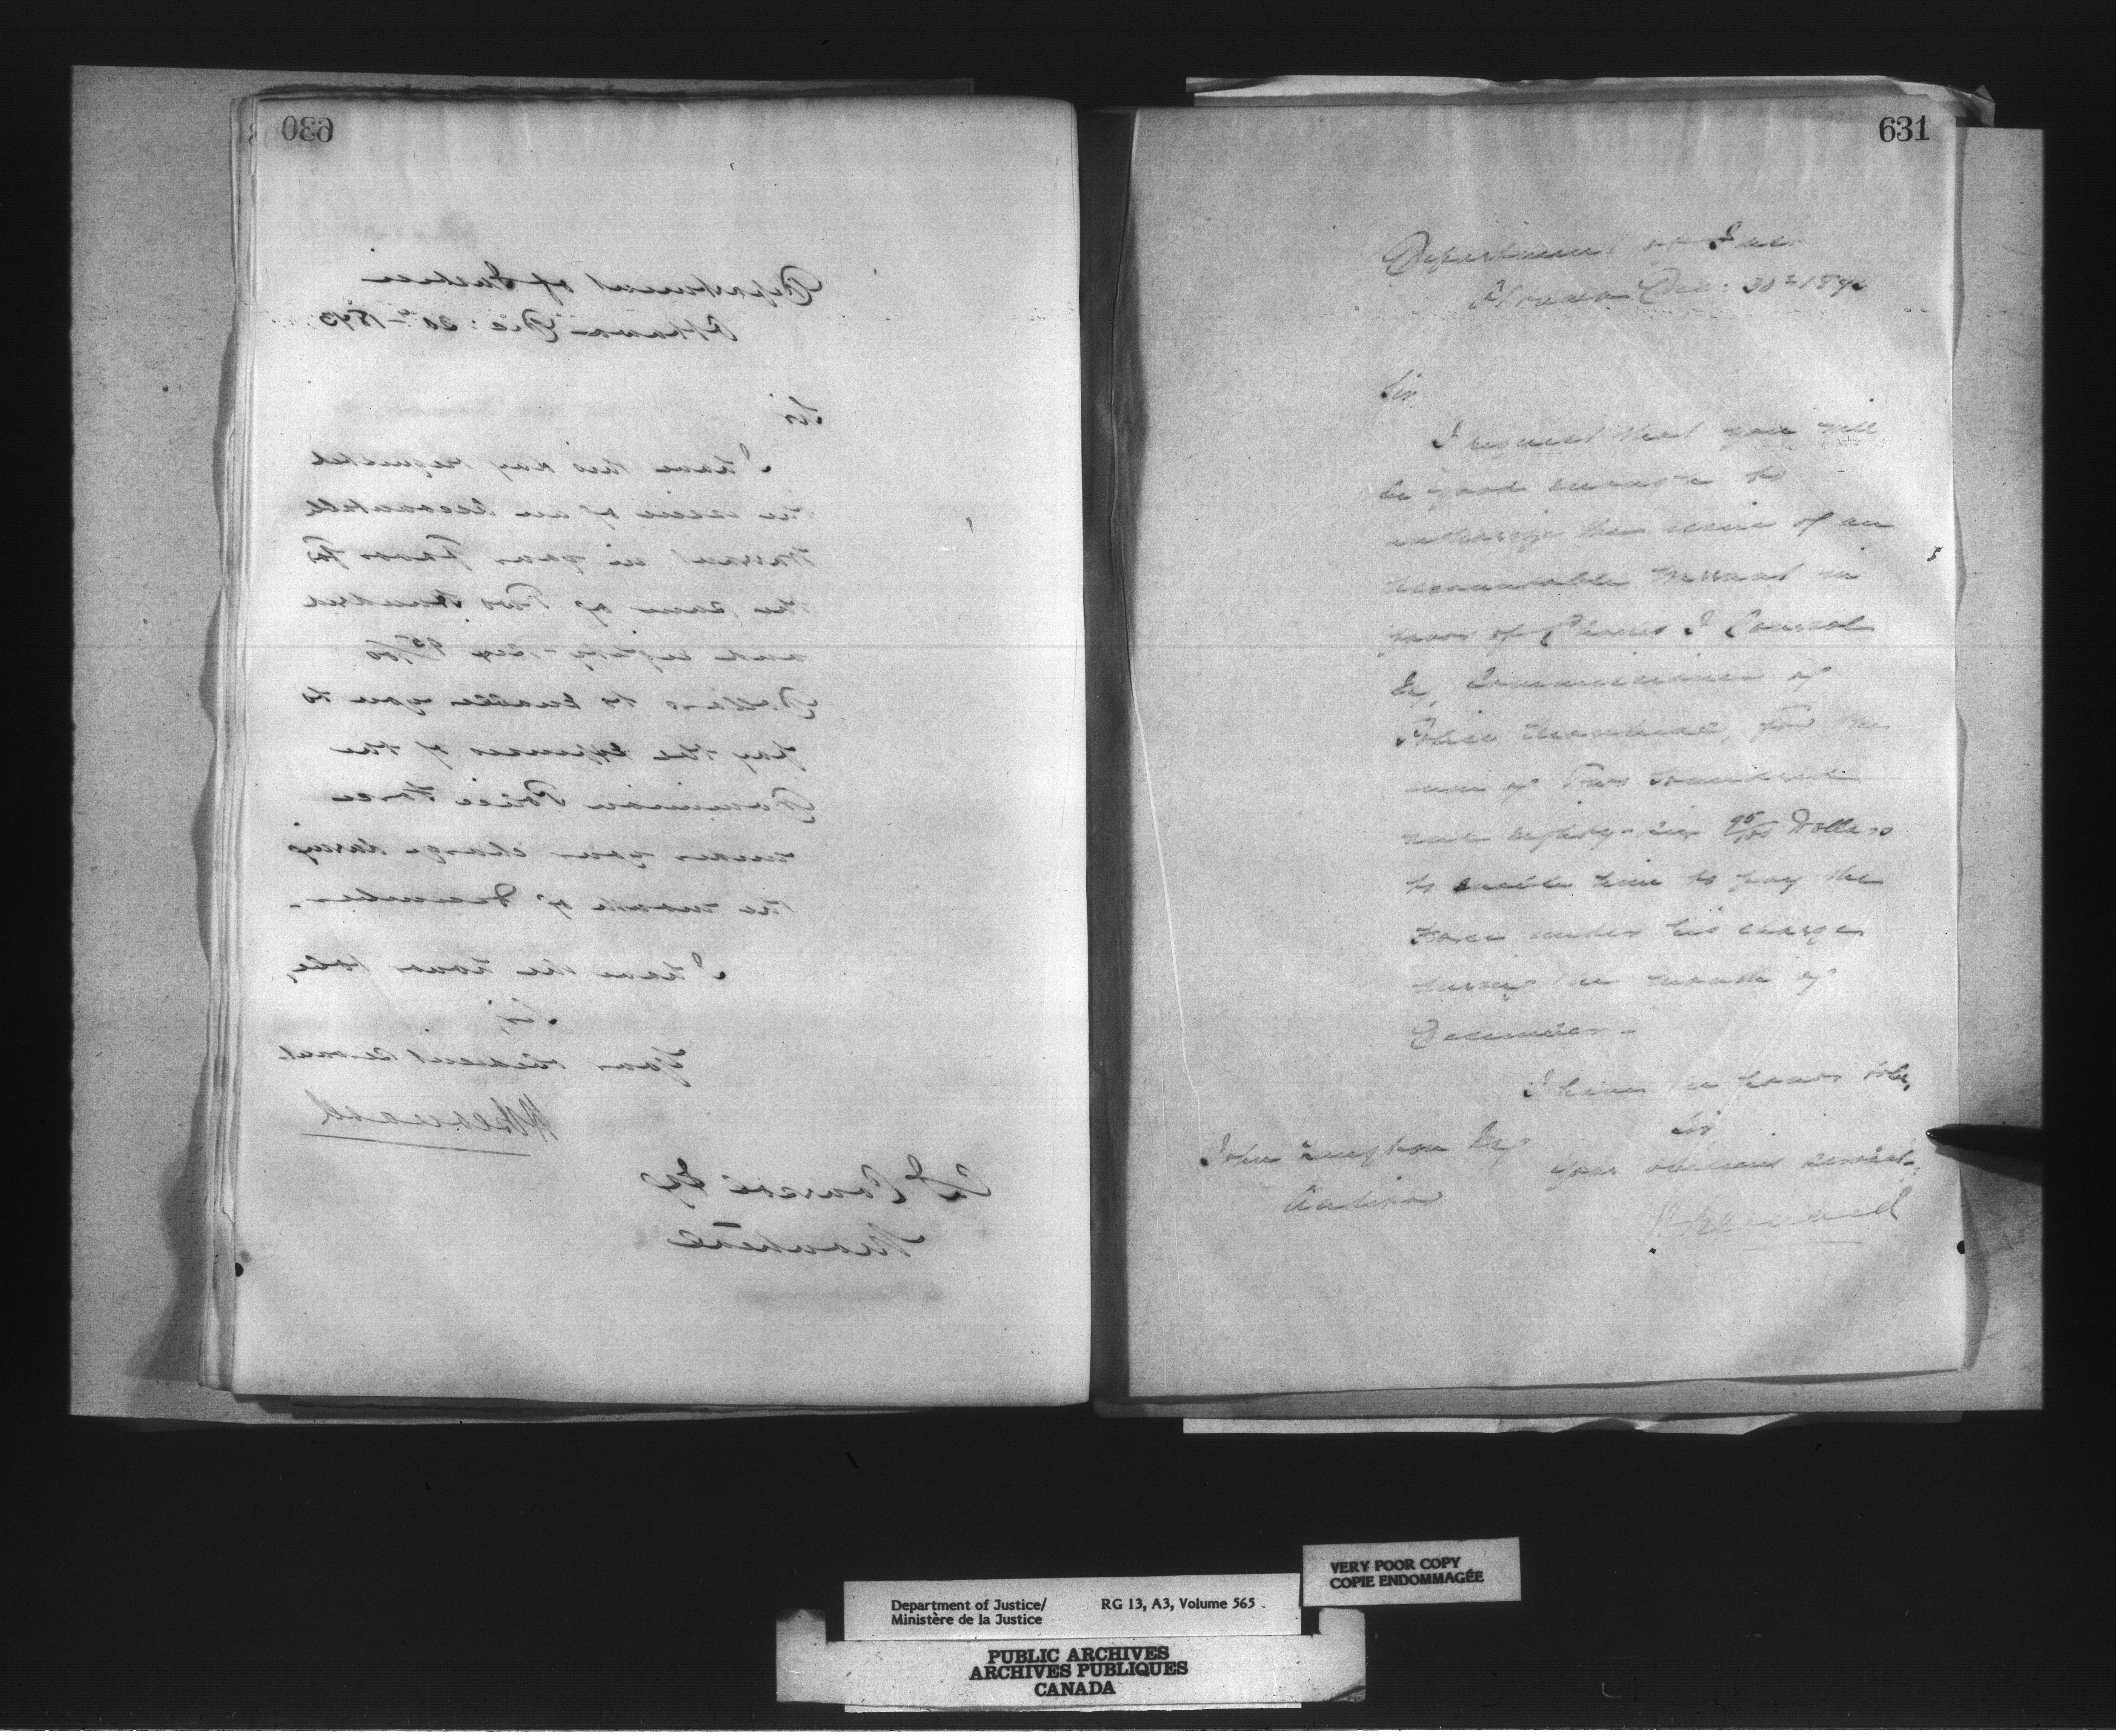 630
Department of Justice
Ottawa Dec: 30th 1873
Sir
I have this day requested
the issue of an accountable
warrant in your favor for
the sum of Two hundred
and eighty-six 95/100
Dollars to enable you to
pay the expenses of the
Dominion Police Force
under your charge during
the month of December-
I have the honor to be,
Sir,
Your obedient servant
H Bernard
C J Coursol Esq
Montreal
631
Department of Justice
Ottawa Dec: 30th 1873
Sir
I request that you will
be good enough to
authorize the issue of an
accountable warrant in
favor of Charles J Coursol
Esq, Commissioner of
Police Montreal, for the
sum of Two hundred
and eighty-six 95/100 Dollars
to enable him to pay the
Force under his charge
during the month of
December-
I have the honor to be,
Sir
Your obedient servant
H Bernard
John Langton Esq
Auditor
VERY POOR COPY
COPIE ENDOMMAGÉE
Department of Justice/ RG 13, A3, Volume 565
Ministère de la Justice
PUBLIC ARCHIVES
ARCHIVES PUBLIQUES
CANADA